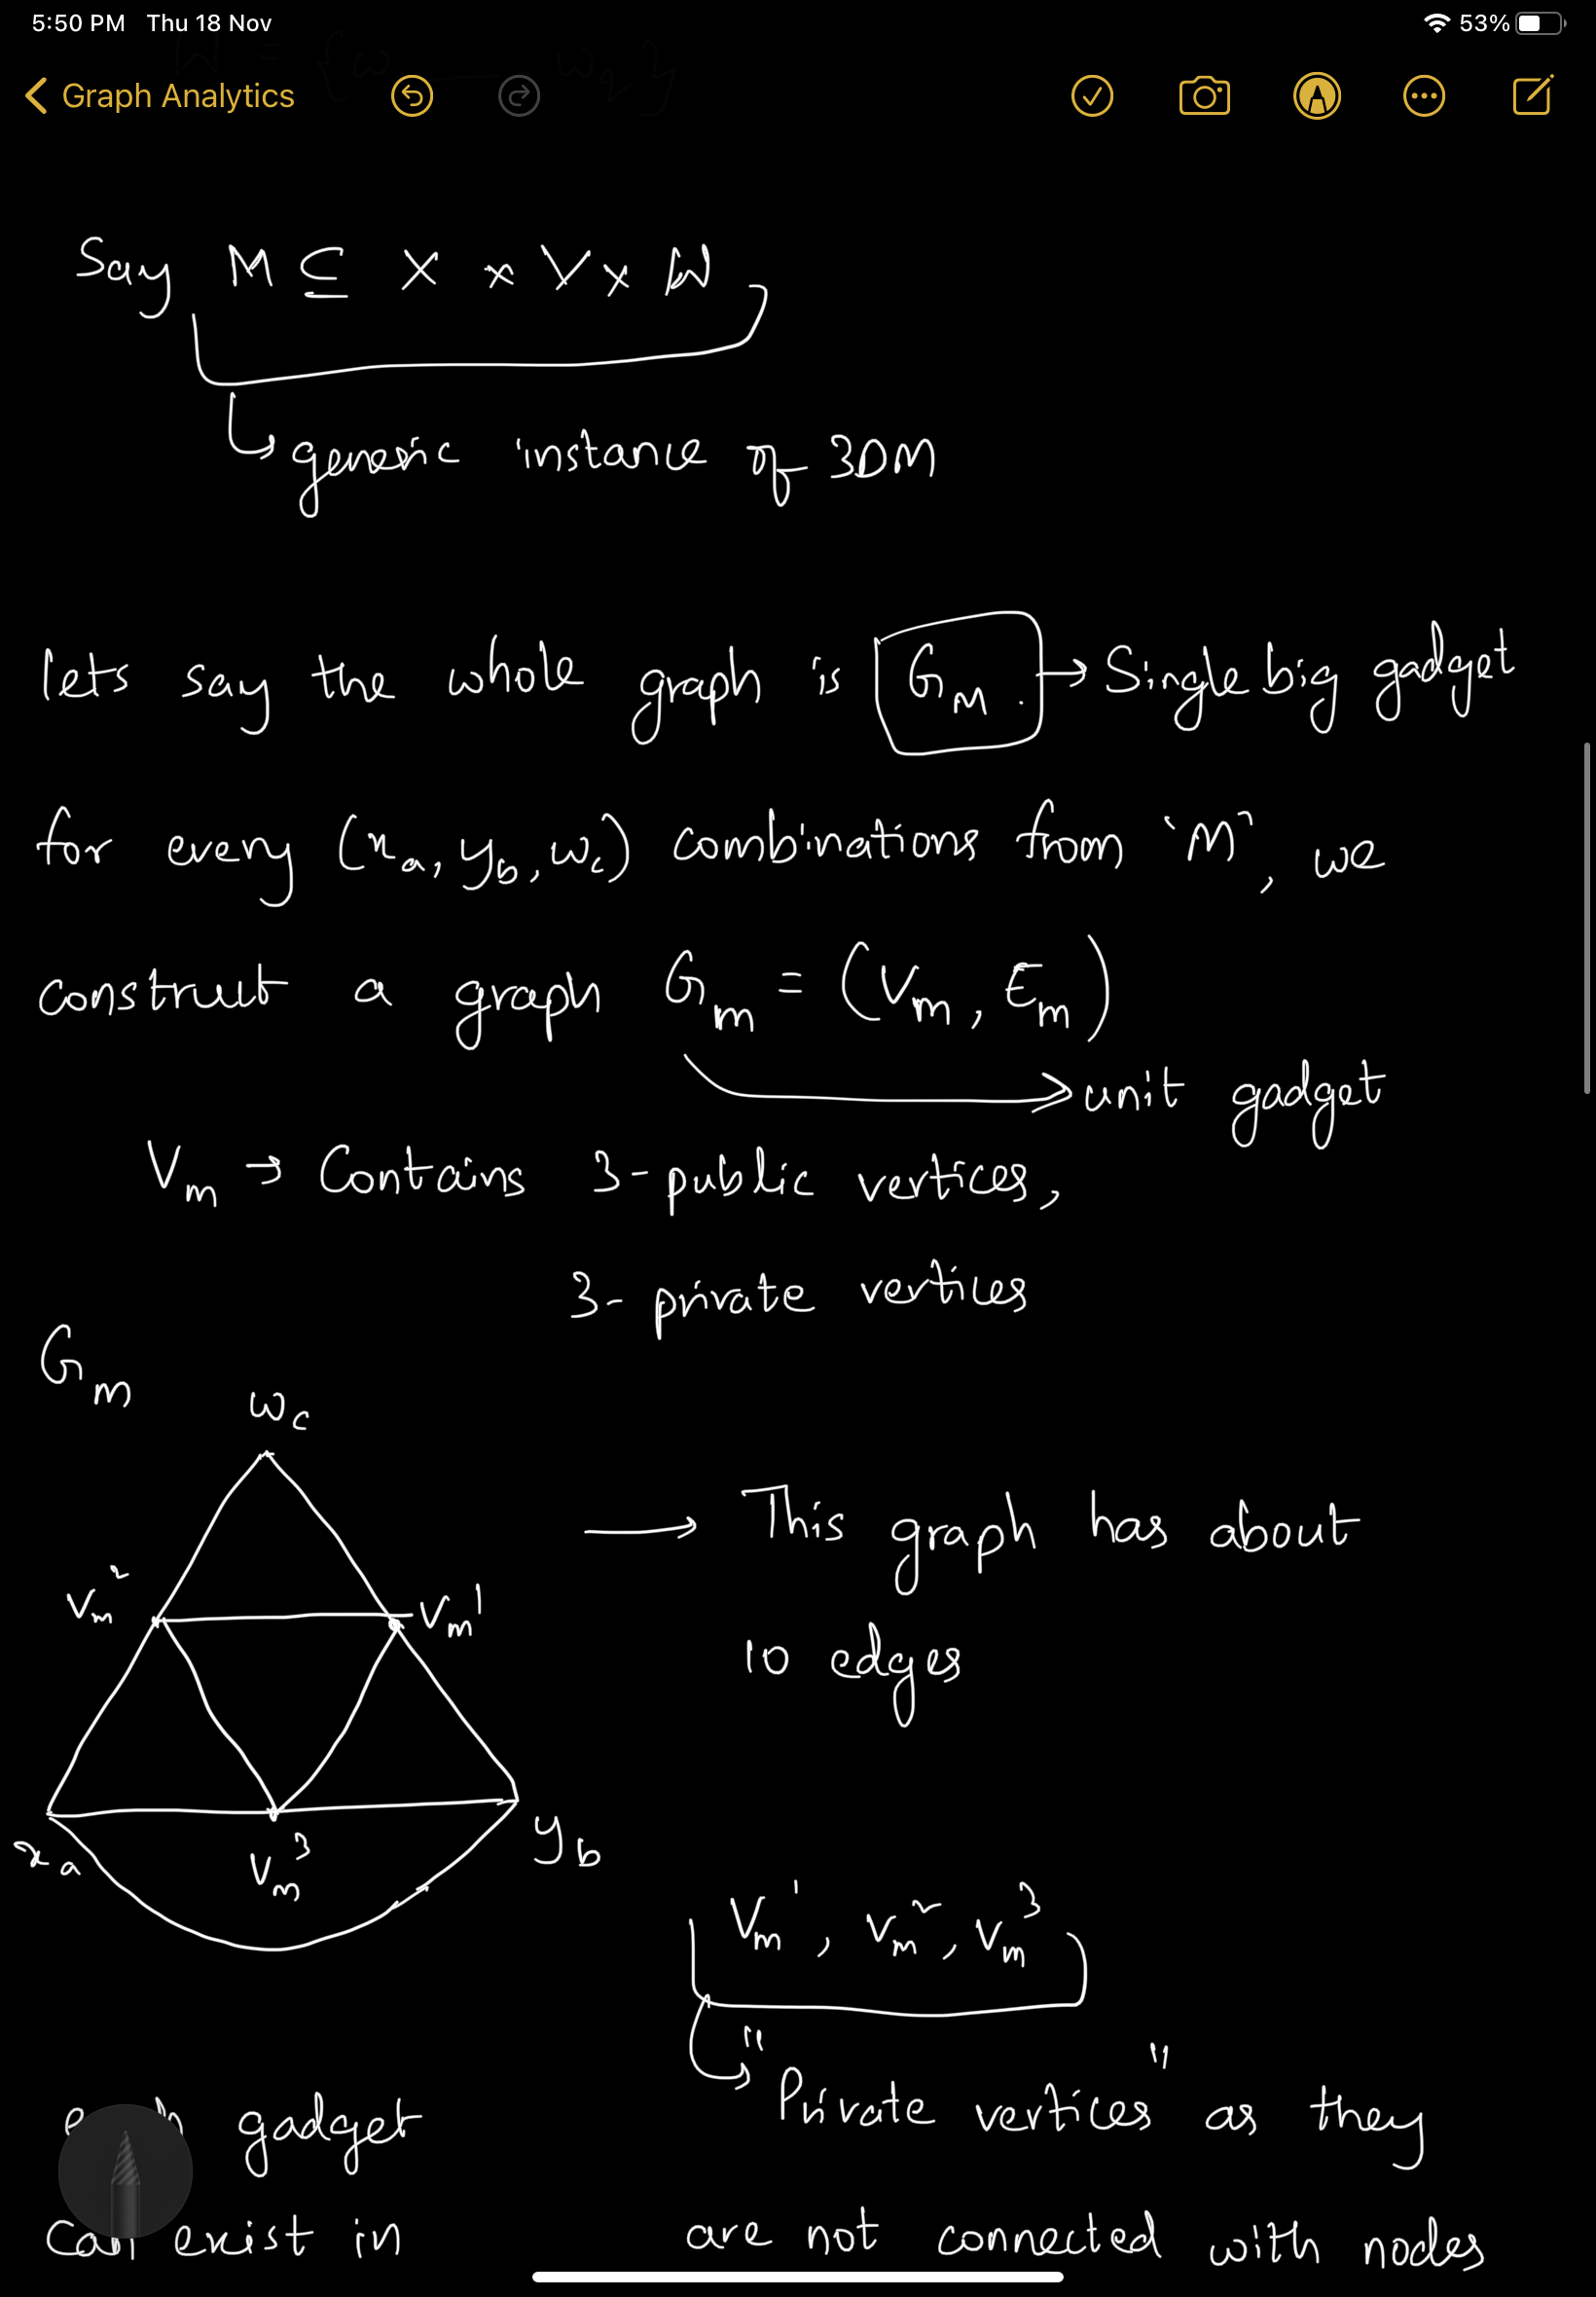 5:50 PM Thu 18 Nov
53%
Graph Analytics
W = {w w_q}
Say M ⊆ X × Y × W
↳ generic instance of 3DM
lets say the whole graph is G_M → Single big gadget
for every (x_a, y_b, w_c) combinations from 'M', we
construct a graph G_m = (V_m, E_m)
→ unit gadget
V_m → Contains 3-public vertices,
3- private vertices
G_m
w_c
v_m^2
v_m^1
→ This graph has about
10 edges
x_a
v_m^3
y_b
V_m^1, v_m^2, v_m^3
↳ "Private vertices" as they
are not connected with nodes
gadget
can exist in